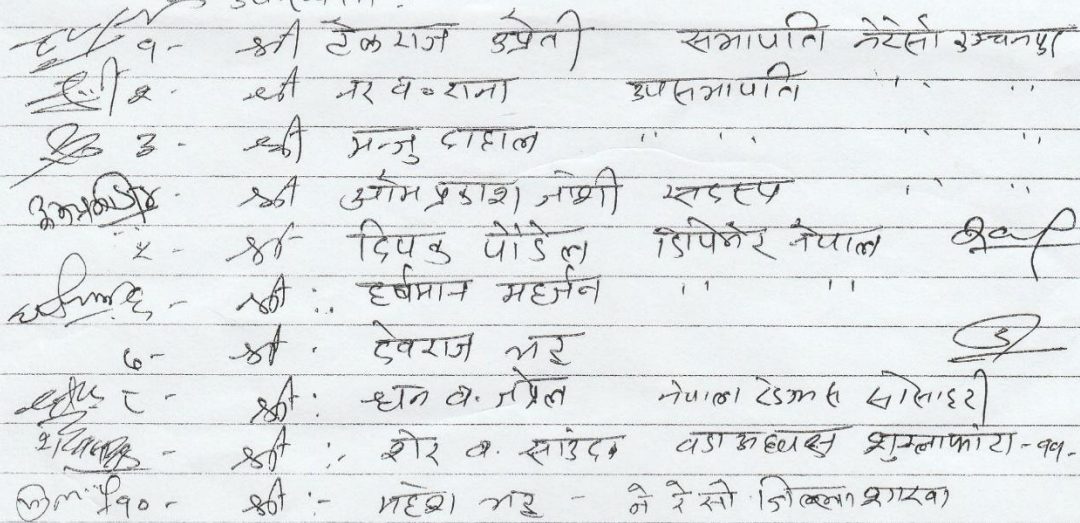 उपस्थिति :
१- श्री टेकराज उप्रेती सभापति नेरेसो कञ्चनपुर
२- श्री नर व॰ राना उपसभापति " "
३- श्री मन्जु दाहाल " " " "
श्री ओम प्रकाश जोशी सदस्य " "
५- श्री दिपक पौडेल डिपेनेर नेपाल
६- श्री : हर्षमान महर्जन " "
७- श्री . देवराज भट्ट
८- श्री : धन व. नेपाल रेडक्रस सोसाइटी
- श्री :- शेर व. साउद वडा अध्यक्ष शुक्लाफाँटा - ११.
१०- श्री :- महेश भट्ट - ने रे सो जिल्ला शाखा